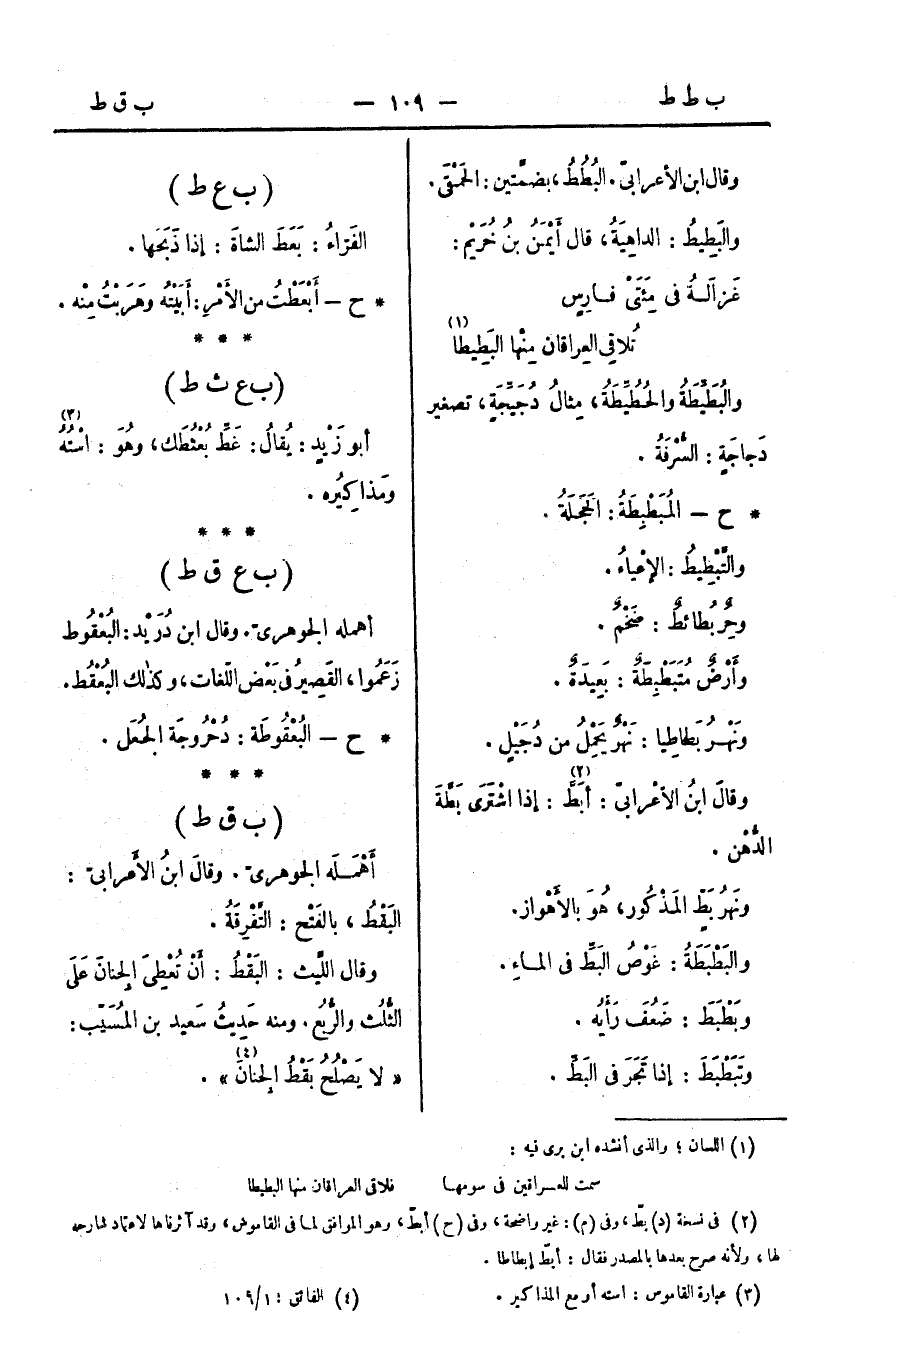 ب ط ط — ١٠٩ — ب ق ط
وقال ابن الأعرابىّ . البُطُطُ ، بضمّتين : الحَمْقَى .
والبَطِيطُ : الداهيَةُ ، قال أَيْمَنُ بنُ خُرَيْم :
غَزالَةُ فى مِئَتَىْ فارِسٍ
تُلاقِى العِراقان مِنْها البَطِيطا (١)
والبُطَيِّطَةُ والحُطَيِّطَةُ ، مِثالُ دُجَيِّجَةٍ ، تصغير
دَجاجَةٍ : السُّرْفَةُ .
* ح — المُبَطْبِطَةُ : الحَجَلَةُ .
والتَّبْطِيطُ : الإعْياءُ .
وحِرٌ بُطائطٌ : ضَخْمٌ .
وأَرْضٌ مُتَبَطْبِطَةٌ : بَعِيدَةٌ .
ونَهْرُ بَطاطِيا : نَهْرٌ يَحْمِلُ من دُجَيْلٍ .
وقالَ ابنُ الأعْرابىّ : أَبَطَّ (٢) : إذا اشْتَرَى بَطَّةَ
الدُّهْن .
ونَهْرُ بَطٍّ المَذْكُور ، هُوَ بالأَهْواز .
والبَطْبَطَةُ : غَوْصُ البَطِّ فى الماءِ .
وبَطْبَطَ : ضَعُفَ رَأْيُه .
وتَبَطْبَطَ : إذا تَجَرَ فى البَطِّ .
( ب ع ط )
الفَرّاءُ : بَعَطَ الشاةَ : إذا ذَبَحَها .
* ح — أَبْعَطْتُ من الأَمْرِ : أَبَيْتُه وهَرَبْتُ مِنْه .
* * *
( ب ع ث ط )
أبو زَيْدٍ : يُقالُ : غَطِّ بُعْثُطَك ، وهُوَ : اسْتُهُ (٣)
ومَذاكِيرُه .
* * *
( ب ع ق ط )
أهمله الجوهرىّ . وقال ابن دُرَيْد : البُعْقُوط
زَعَمُوا ، القَصِيرُ فى بَعْض اللّغات ، وكذلك البُعْقُط .
* ح — البُعْقُوطَة : دُحْرُوجَة الجُعَل .
* * *
( ب ق ط )
أَهْمَلَه الجوهرىّ . وقالَ ابنُ الأَعرابىّ :
البَقْطُ ، بالفَتْح : التَّفْرِقَةُ .
وقال اللَّيث : البَقْطُ : أَنْ تُعْطِىَ الجِنانَ عَلَى
الثُّلث والرُّبُع . ومنه حَدِيثُ سَعِيد بن المُسَيّب :
« لا يَصْلُحُ بَقْطُ الجِنانَ (٤) » .
(١) اللسان ؛ والذى أنشده ابن برى فيه :
سمت للعراقين فى سومها فلاقى العراقان منها البطيطا
(٢) فى نسخة (د) بطّ ، وفى (م) : غير واضحة ، وفى (ح) أبطّ ، وهو الموافق لما فى القاموس ، وقد آثرناها لاعتماد شارحه
لها ، ولأنه صرح بعدها بالمصدر فقال : أبطّ إبطاطا .
(٣) عبارة القاموس : استه أو مع المذاكير .
(٤) الفائق : ١/١٠٩